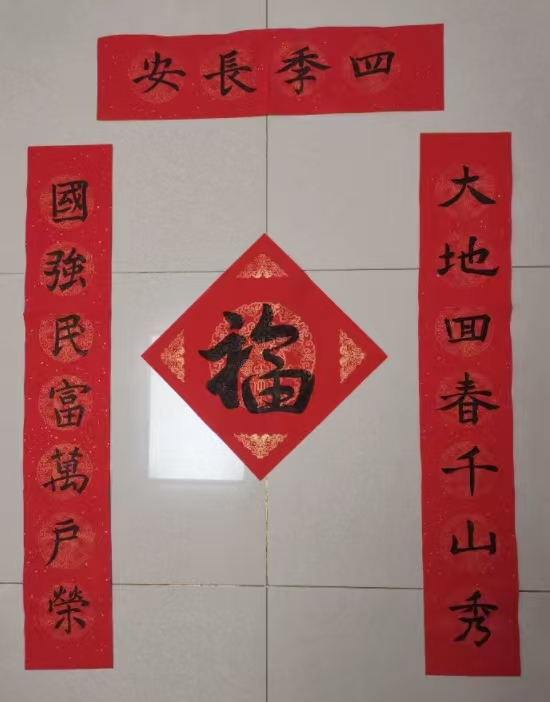 四季長安
大地回春千山秀
國強民富萬户榮
福